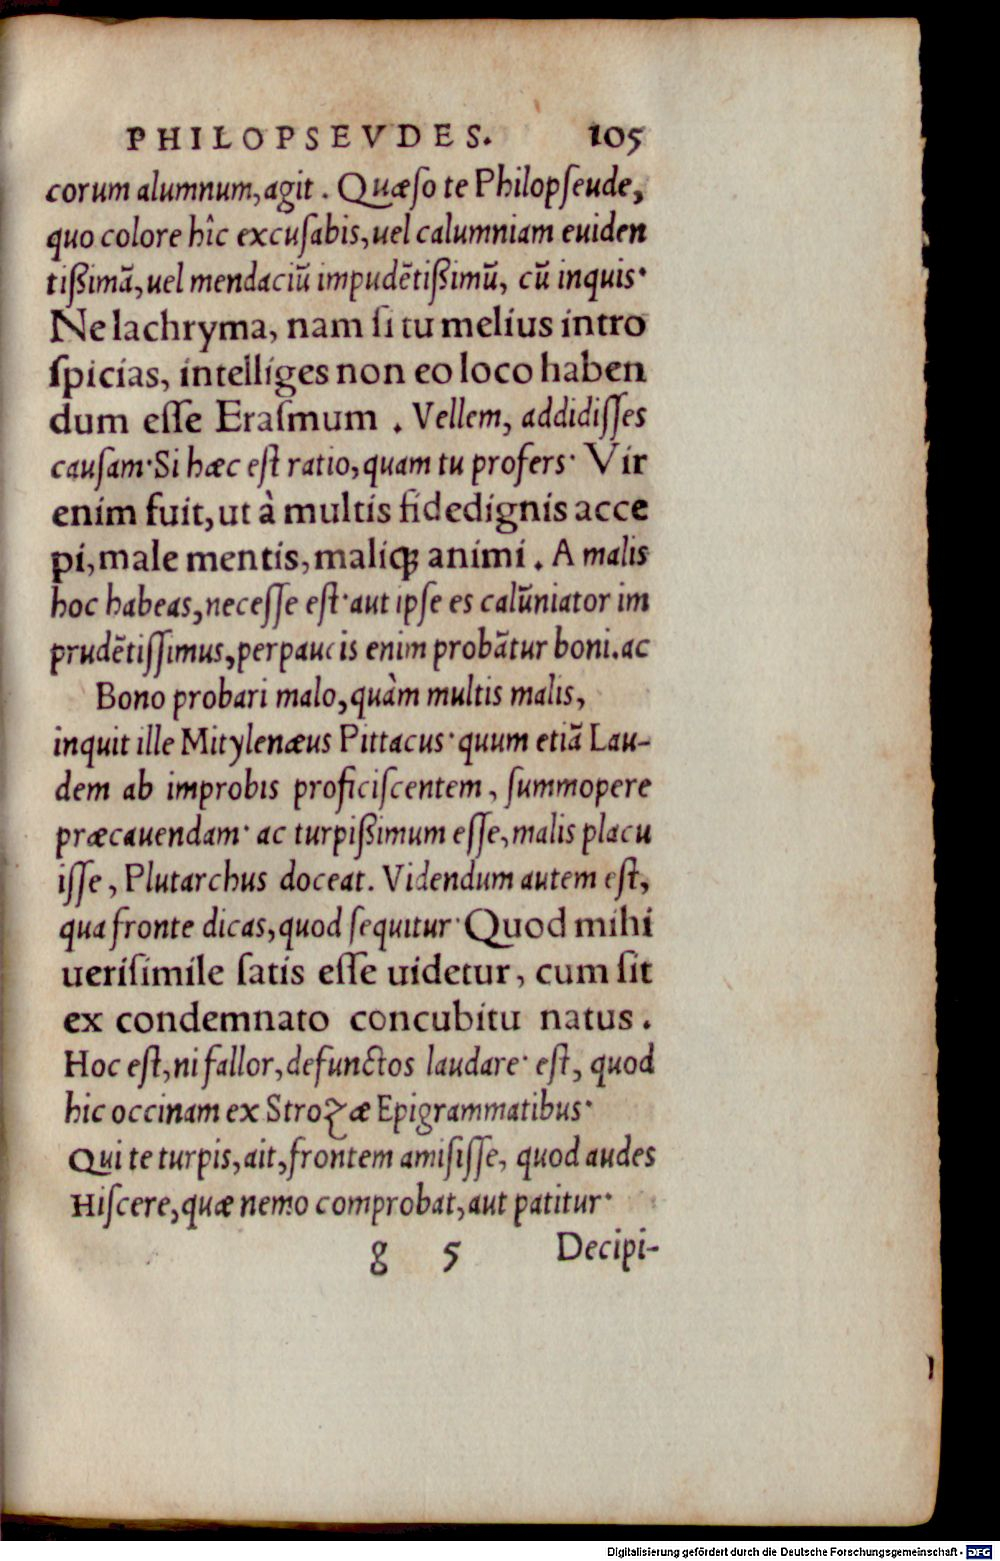 PHILOPSEVDES. 105
corum alumnum, agit. Quæso te Philopseude,
quo colore hîc excusabis, uel calumniam euiden
tißimã, uel mendaciũ impudẽtißimũ, cũ inquis·
Ne lachryma, nam si tu melius intro
spicias, intelliges non eo loco haben
dum esse Erasmum. Vellem, addidisses
causam· Si hæc est ratio, quam tu profers· Vir
enim fuit, ut à multis fidedignis acce
pi, male mentis, maliqꝫ animi. A malis
hoc habeas, necesse est· aut ipse es calũniator im
prudẽtissimus, perpaucis enim probãtur boni. ac
Bono probari malo, quàm multis malis,
inquit ille Mitylenæus Pittacus· quum etiã Lau-
dem ab improbis proficiscentem, summopere
præcauendam· ac turpißimum esse, malis placu
isse, Plutarchus doceat. Videndum autem est,
qua fronte dicas, quod sequitur· Quod mihi
uerisimile satis esse uidetur, cum sit
ex condemnato concubitu natus.
Hoc est, ni fallor, defunctos laudare· est, quod
hic occinam ex Strozæ Epigrammatibus·
Qui te turpis, ait, frontem amisisse, quod audes
Hiscere, quæ nemo comprobat, aut patitur·
g 5 Decipi-
Digitalisierung gefördert durch die Deutsche Forschungsgemeinschaft - DFG